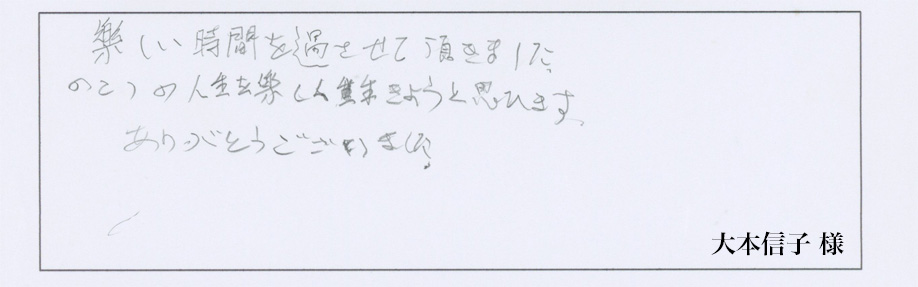 楽しい時間を過させて頂きました。
のこりの人生を楽しく生きようと思ひます。
ありがとうございました。
大本信子 様